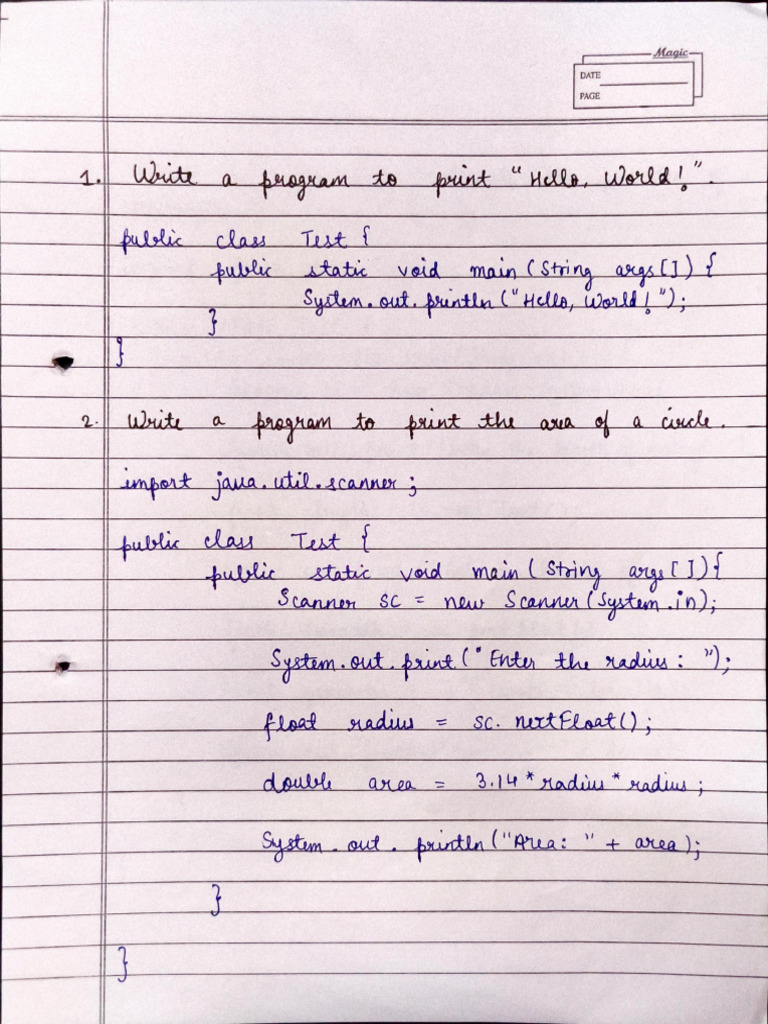 Magic
DATE
PAGE
1. Write a program to print "Hello, World!".
public class Test {
public static void main (String args[]) {
System.out.println ("Hello, World!");
}
}
2. Write a program to print the area of a circle.
import java.util.scanner;
public class Test {
public static void main (String args[]) {
Scanner sc = new Scanner (System.in);
System.out.print ("Enter the radius: ");
float radius = sc.nextFloat();
double area = 3.14 * radius * radius;
System.out.println ("Area: " + area);
}
}